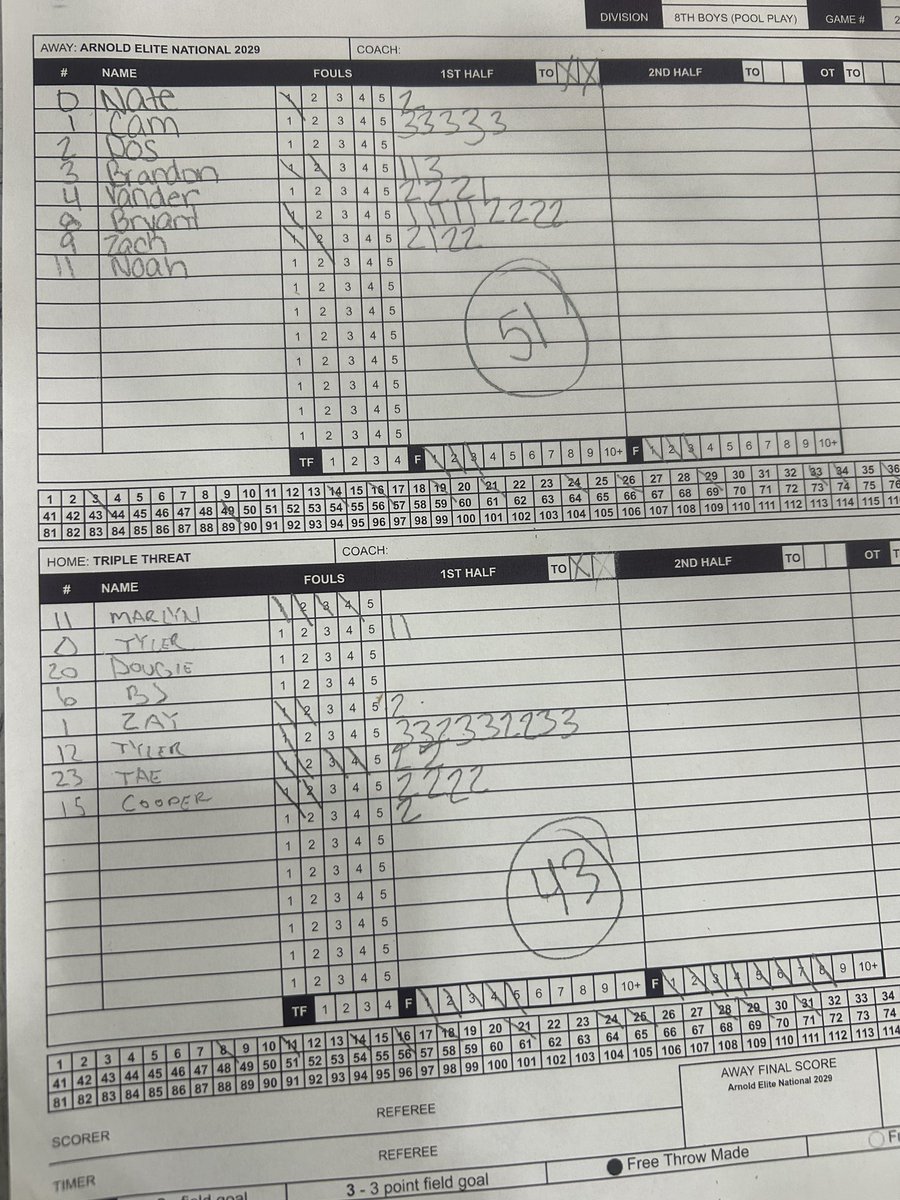 DIVISION 8TH BOYS (POOL PLAY) GAME # 2
AWAY: ARNOLD ELITE NATIONAL 2029 COACH:
# NAME FOULS 1ST HALF TO 2ND HALF TO OT TO
0 Nate 1 2 3 4 5 2
1 Cam 1 2 3 4 5 33333
2 Dos 1 2 3 4 5
3 Brandon 1 2 3 4 5 113
4 Vander 1 2 3 4 5 2221
8 Bryant 1 2 3 4 5 111112222
9 Zach 1 2 3 4 5 2122
11 Noah 1 2 3 4 5
1 2 3 4 5
1 2 3 4 5
1 2 3 4 5
51
1 2 3 4 5
1 2 3 4 5
1 2 3 4 5
1 2 3 4 5
TF 1 2 3 4 F 1 2 3 4 5 6 7 8 9 10+ F 1 2 3 4 5 6 7 8 9 10+
1 2 3 4 5 6 7 8 9 10 11 12 13 14 15 16 17 18 19 20 21 22 23 24 25 26 27 28 29 30 31 32 33 34 35 36
41 42 43 44 45 46 47 48 49 50 51 52 53 54 55 56 57 58 59 60 61 62 63 64 65 66 67 68 69 70 71 72 73 74 75 76
81 82 83 84 85 86 87 88 89 90 91 92 93 94 95 96 97 98 99 100 101 102 103 104 105 106 107 108 109 110 111 112 113 114 115
HOME: TRIPLE THREAT COACH:
# NAME FOULS 1ST HALF TO 2ND HALF TO OT
11 MARLYN 1 2 3 4 5
0 TYLER 1 2 3 4 5 11
20 DOUGIE 1 2 3 4 5
6 BJ 1 2 3 4 5
1 ZAY 1 2 3 4 5 2
12 TYLER 1 2 3 4 5 332332233
23 TAE 1 2 3 4 5 22
15 COOPER 1 2 3 4 5 2222
1 2 3 4 5 2
1 2 3 4 5
1 2 3 4 5
1 2 3 4 5
43
1 2 3 4 5
1 2 3 4 5
1 2 3 4 5
TF 1 2 3 4 F 1 2 3 4 5 6 7 8 9 10+ F 1 2 3 4 5 6 7 8 9 10+
1 2 3 4 5 6 7 8 9 10 11 12 13 14 15 16 17 18 19 20 21 22 23 24 25 26 27 28 29 30 31 32 33 34
41 42 43 44 45 46 47 48 49 50 51 52 53 54 55 56 57 58 59 60 61 62 63 64 65 66 67 68 69 70 71 72 73 74
81 82 83 84 85 86 87 88 89 90 91 92 93 94 95 96 97 98 99 100 101 102 103 104 105 106 107 108 109 110 111 112 113 114
AWAY FINAL SCORE
Arnold Elite National 2029
SCORER REFEREE
TIMER REFEREE
field goal 3 - 3 point field goal Free Throw Made